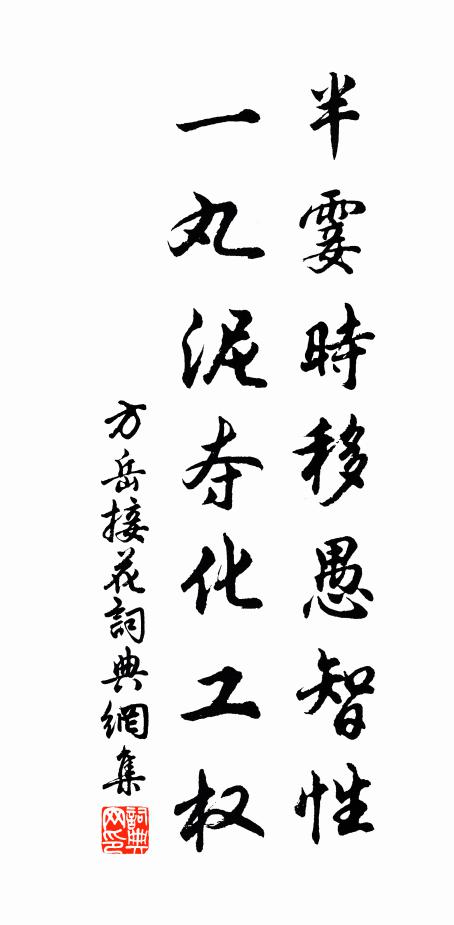 半霎時移愚智性
一丸泥夺化工权
方岳接花詞典網集
詞典网印